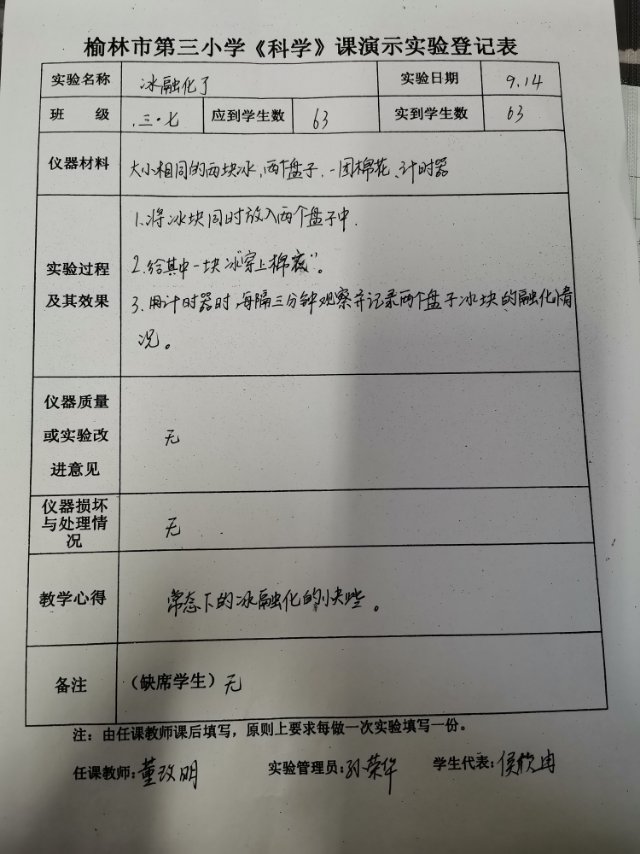 榆林市第三小学《科学》课演示实验登记表
实验名称 冰融化了 实验日期 9.14
班 级 三·七 应到学生数 63 实到学生数 63
仪器材料 大小相同的两块冰,两个盘子,一团棉花、计时器
1.将冰块同时放入两个盘子中.
实验过程及其效果 2.给其中一块冰“穿上棉衣”。
3.用计时器时,每隔三分钟观察并记录两个盘子冰块的融化情
况。
仪器质量
或实验改 无
进意见
仪器损坏
与处理情 无
况
教学心得 常态下的冰融化的快些。
备注 (缺席学生)无
注:由任课教师课后填写,原则上要求每做一次实验填写一份。
任课教师:董改明 实验管理员:孙荣华 学生代表:侯欣冉